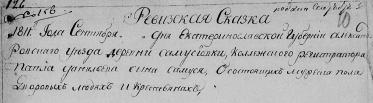 Ревизская Сказка
1811 Года Сентября. дня Екатеринославской Губернии алексан
дровского уезда деревни самусиовки, Колежского регистратора
Павла сына самуся, О состоящих мужеска пола
дворовых людях и крестьянах,